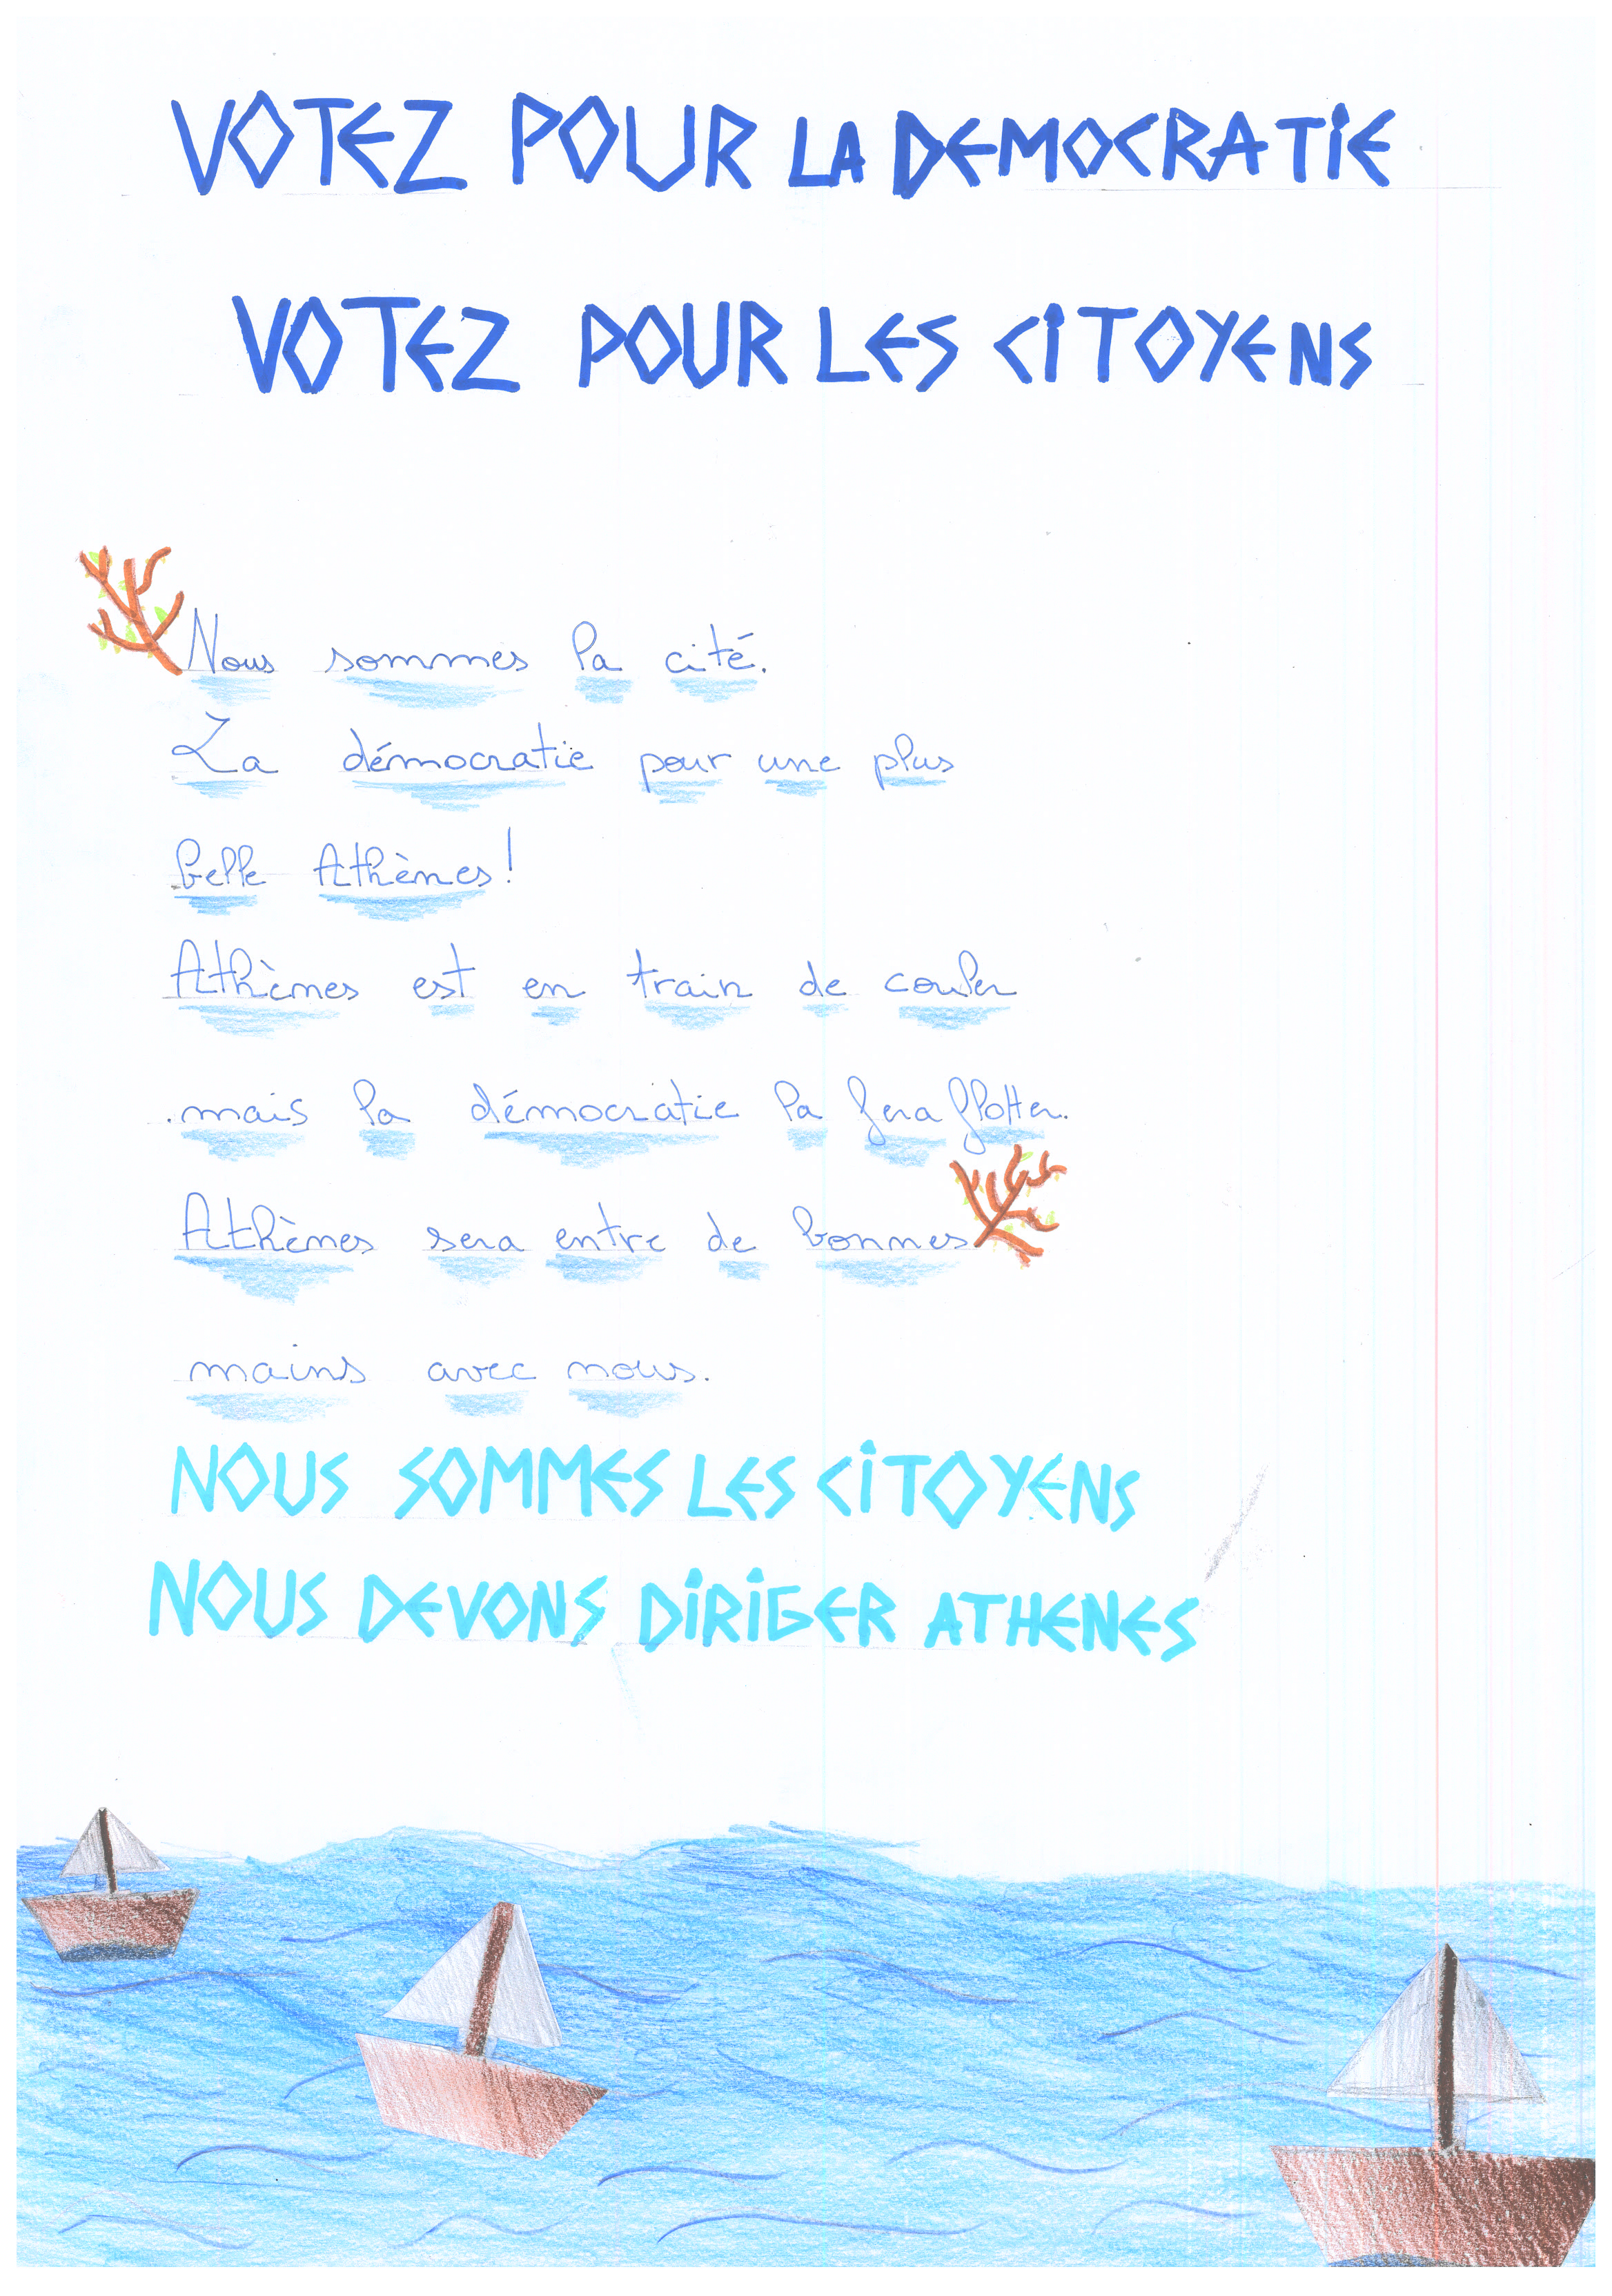 VOTEZ POUR LA DEMOCRATIE
VOTEZ POUR LES CITOYENS
Nous sommes la cité.
La démocratie pour une plus
belle Athènes!
Athènes est en train de couler
mais la démocratie la fera flotter.
Athènes sera entre de bonnes
mains avec nous.
NOUS SOMMES LES CITOYENS
NOUS DEVONS DIRIGER ATHENES